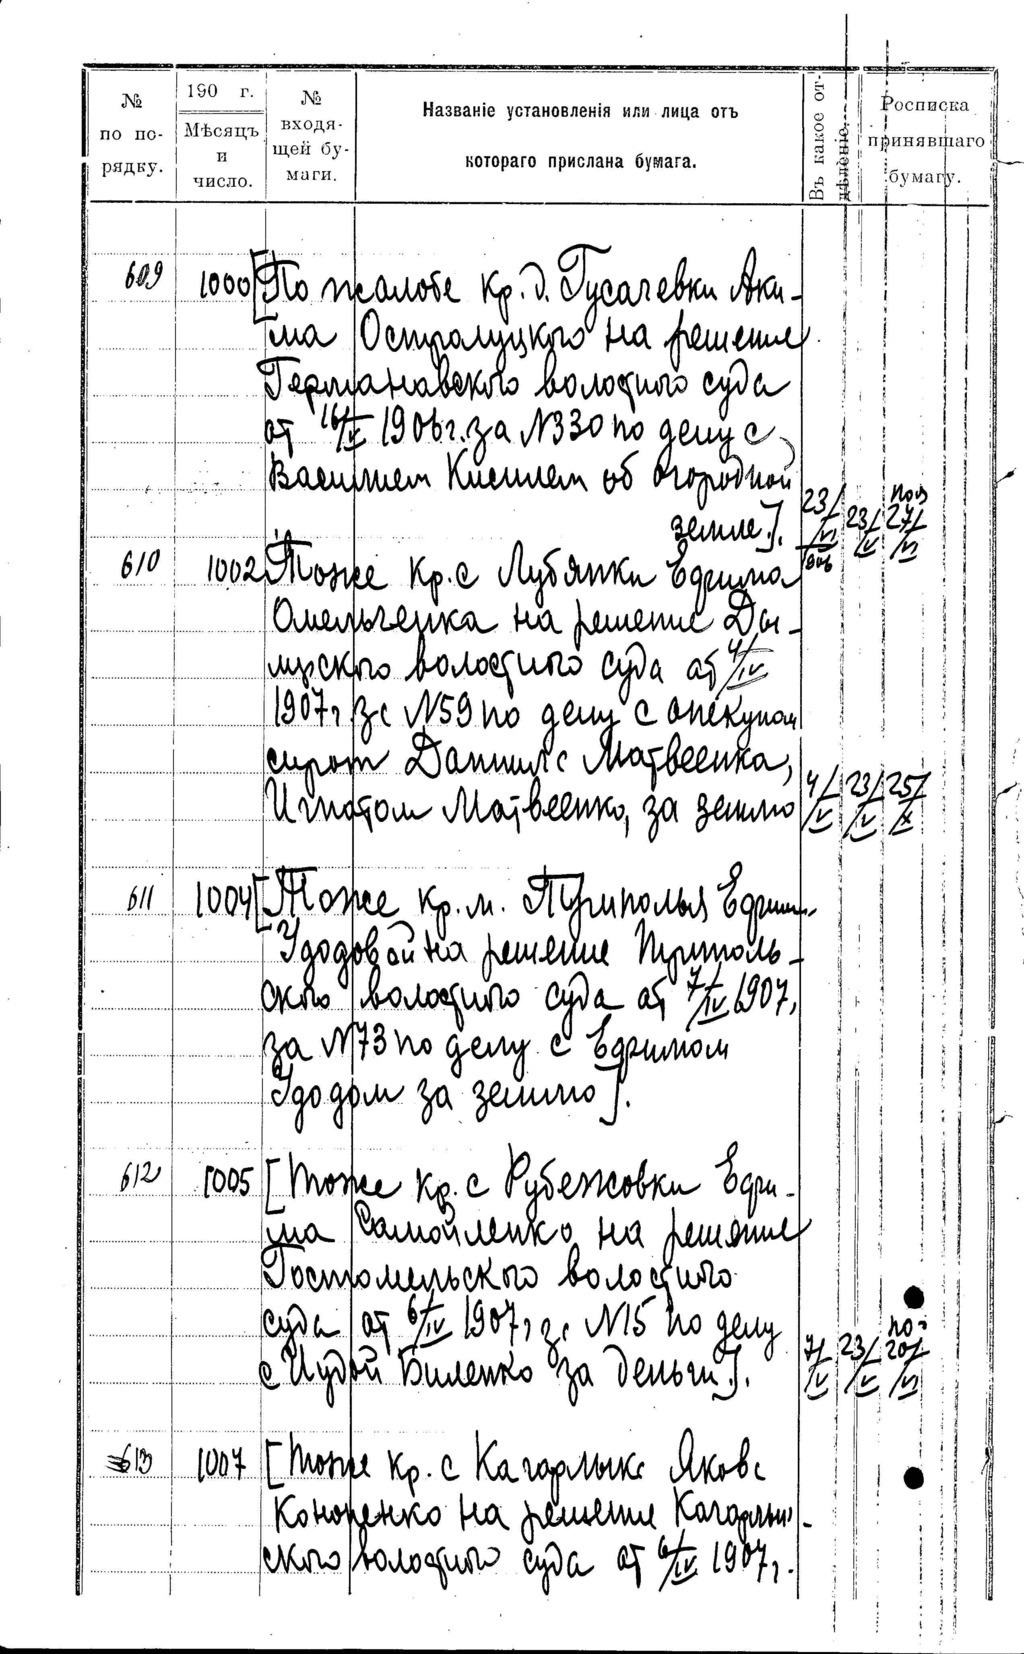 № по порядку.
190 г. Мѣсяцъ и число.
№ входящей бумаги.
Названіе установленія или лица отъ котораго прислана бумага.
Въ какое отдѣленіе.
Росписка принявшаго бумагу.
609 1000 [По жалобе кр. д. Гусачевки Аки-
ма Остролуцкого на решение
Германовского волостного суда
от 16/IV 1906 г. за №330 по делу с
Василием Кисилем об огородной
земле]. 23/VI 906 23/V 27/VI
610 1002 Тоже кр. с Лубянки Ефима
Омельченка на решение Ды-
мерского волостного суда от 4/IV
1907 г за №59 по делу с опекуном
сирот Даниила Матвеенка,
Игнатом Матвеенко, за землю 4/V 23/V 25/X
611 1004 [Тоже кр. м. Триполья Ефими
Удодовой на решение Триполь-
ского волостного суда от 7/IV 1907,
за №73 по делу с Ефимом
Удодом за землю].
612 1005 [Тоже кр. с Рубежовки Ефи-
ма Самойленко на решение
Гостомельского волостного
суда от 6/IV 1907 г за №15 по делу
с Иудой Биленко за деньги]. 7/V 23/V 20/VI
613 1007 [Тоже кр. с Кагарлыка Якова
Кононенко на решение Кагарлык-
ского волостного суда от 6/IV 1907 г.